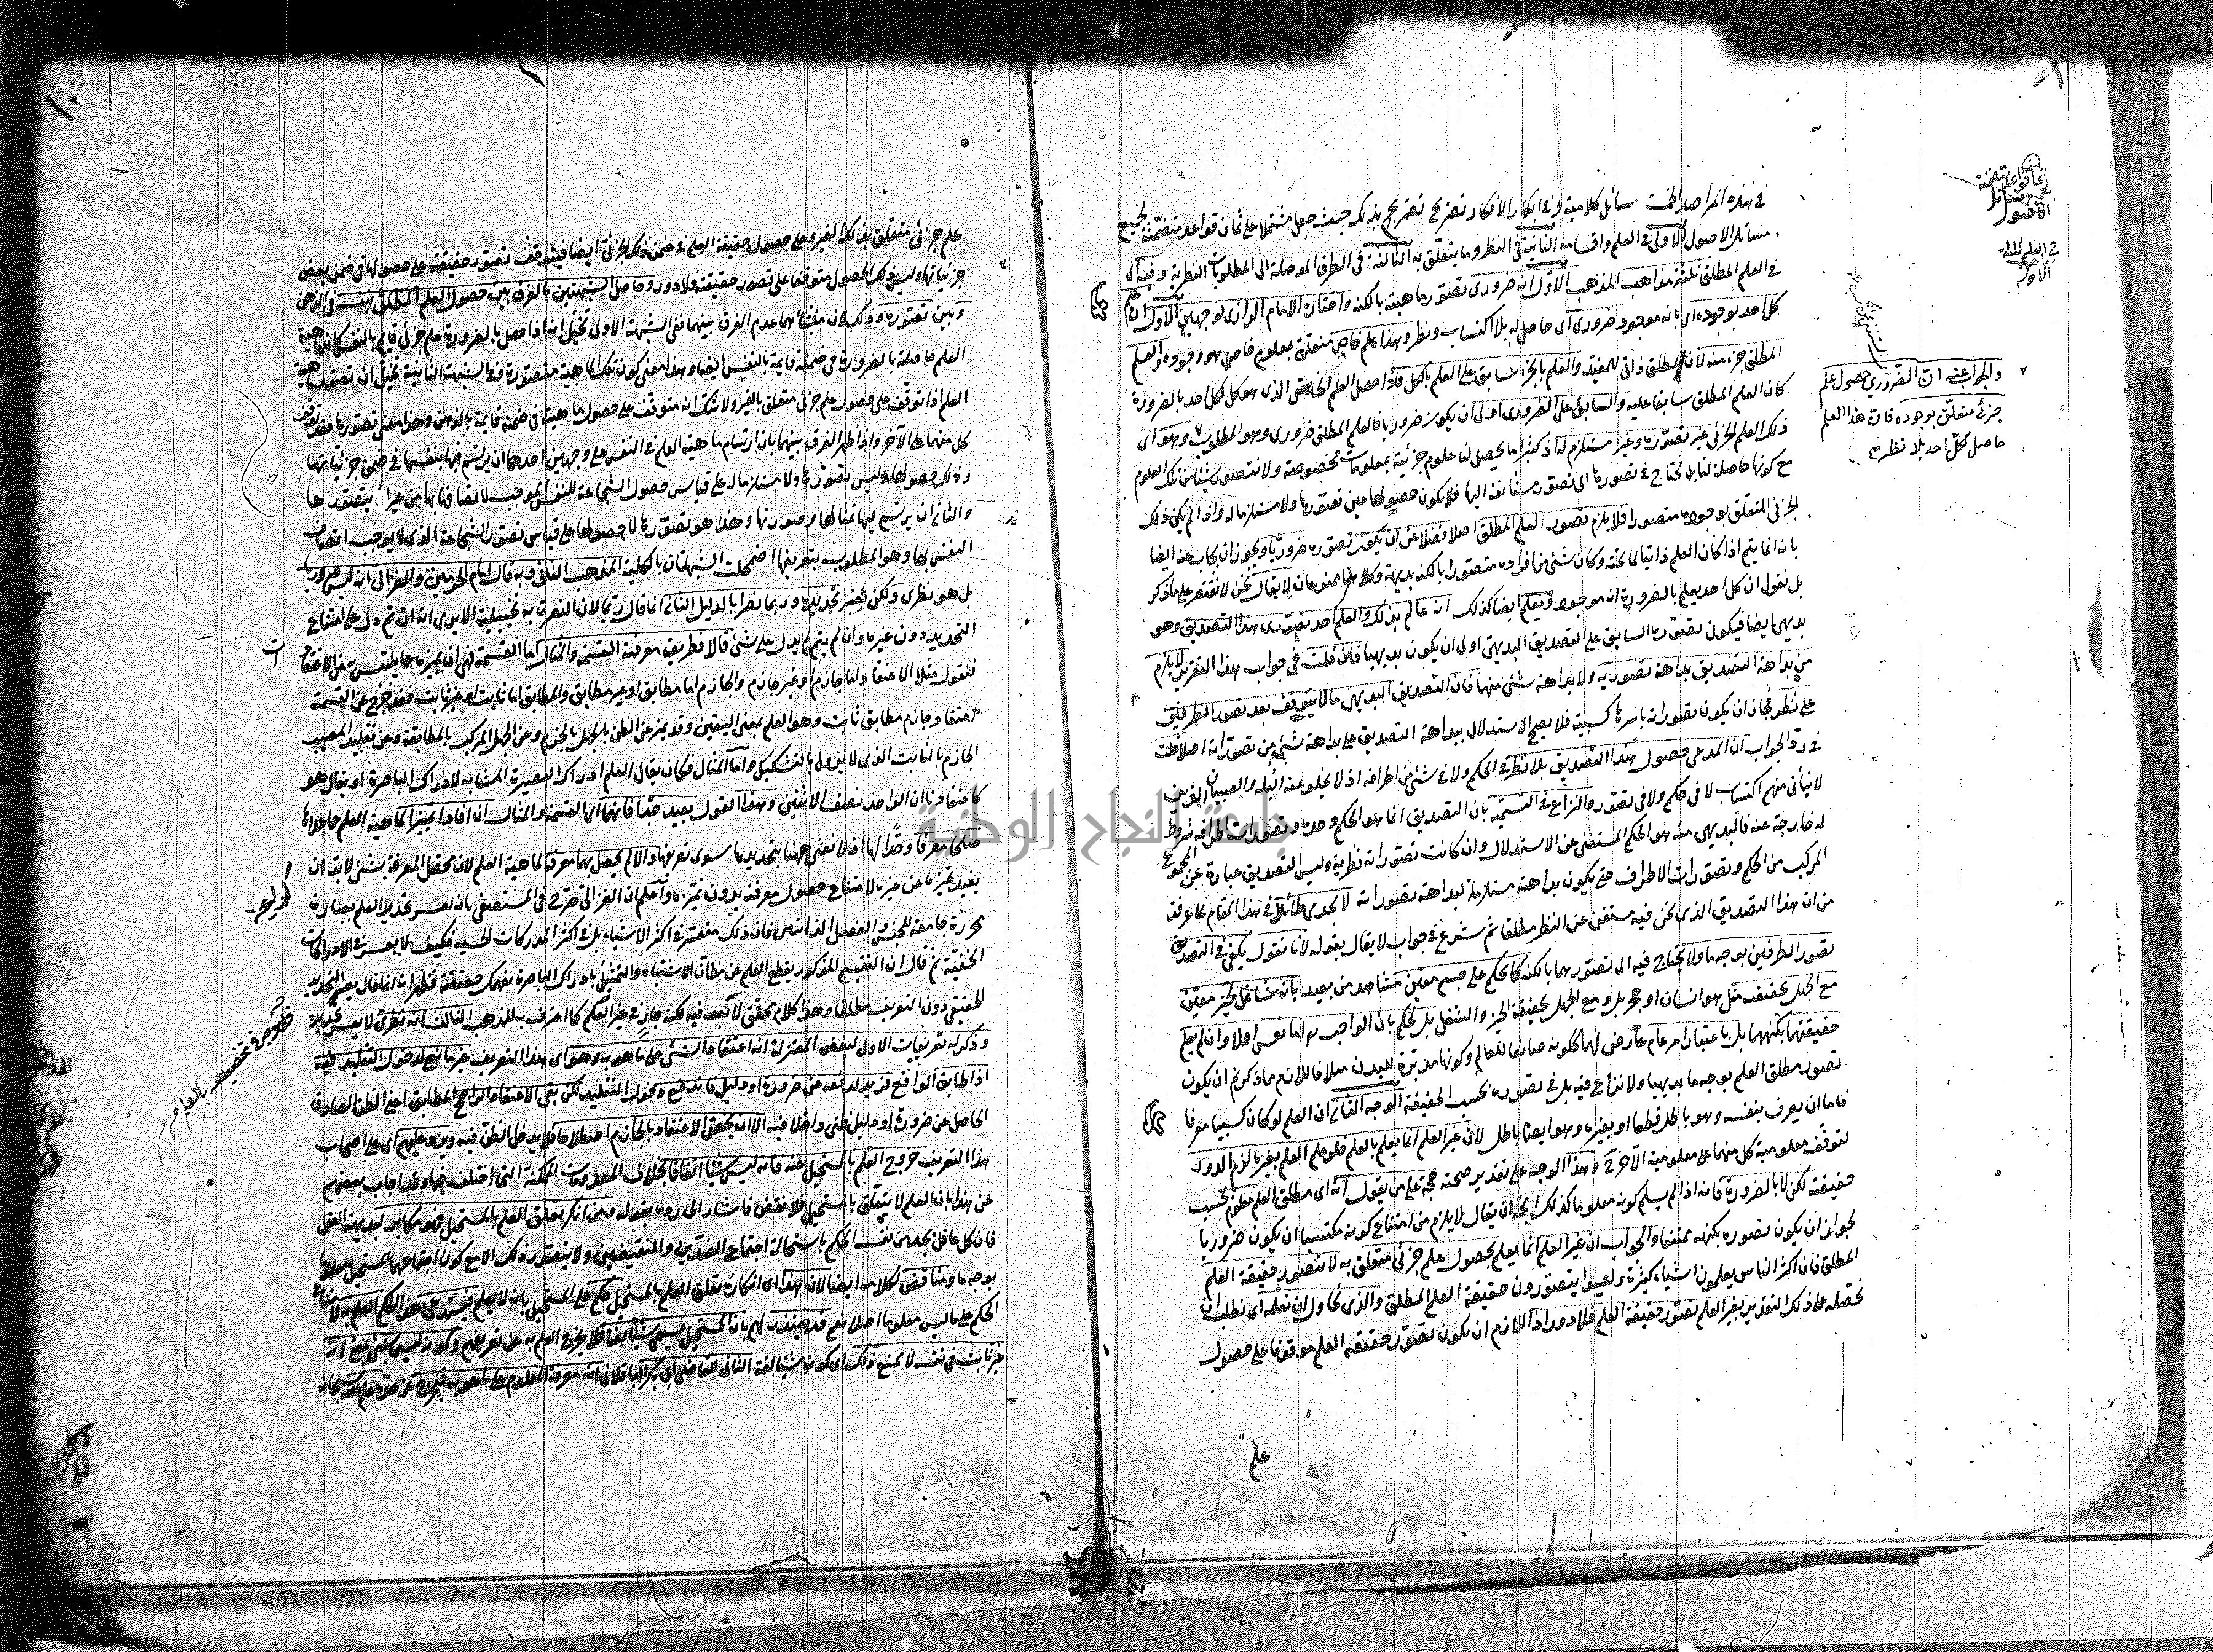 في هذه المراصد الخمسة مسائل كلامية وفي ابكار الافكار تصريح بذلك حيث جعله مشتملا على ثمان قواعد متضمنة لجميع
مسائل الاصول الاولى في العلم واقسامه الثانية في النظر وما يتعلق به الثالثة في الطرق الموصلة الى المطلوبات النظرية
في العلم المطلق ثلثة مذاهب المذهب الاول انه ضروري تصور ماهيته بالكنه واختاره الامام الرازي لوجهين الاول ان علم
كل احد بوجوده اى بانه موجود ضروري اى حاصل له بلا اكتساب ونظر وهذا علم خاص متعلق بمعلوم خاص هو وجوده والعلم
المطلق جزء منه لان المطلق ذاتي للمقيد والعلم بالجزء سابق على العلم بالكل فاذا حصل العلم الخاص الذي هو كل لكل احد بالضرورة
كان العلم المطلق سابقا عليه والسابق على الضروري اولى ان يكون ضروريا فالعلم المطلق ضروري وهو المطلوب
ذلك العلم الجزئي غير تصوره وغير مستلزم له اذ كثيرا ما يحصل لنا علوم جزئية بمعلومات مخصوصة ولا نتصور شيئا من تلك العلوم
مع كونها حاصلة لنا بل نحتاج في تصورها الى تصور مستانف اليها فلا يكون حصولها عين تصورها ولا مستلزما له واذا لم يكن ذلك
الجزئي المتعلق بوجوده متصورا فلا يلزم تصور العلم المطلق اصلا فضلا عن ان يكون تصوره ضروريا ويجوز ان يجاب عنه ايضا
بانه انما يتم اذا كان العلم ذاتيا لما تحته وكان شئ من افراده متصورا بالكنه بديهة وكلاهما ممنوعان لا يقال نحن لا نقتصر على ما ذكر
بل نقول ان كل احد يعلم بالضرورة انه موجود ويعلم ايضا كذلك انه عالم بذلك والعلم احد تصوري هذا التصديق وهو
بديهي ايضا فيكون تصوره السابق على التصديق البديهي اولى ان يكون بديهيا فان قلت في جواب هذا التقرير لا يلزم
من بداهة التصديق بداهة تصوريه ولا بداهة شئ منهما فان التصديق البديهي ما لا يتوقف بعد تصور الطرفين
على نظر فجاز ان يكون تصوراته باسرها كسبية فلا يصح الاستدلال ببداهة التصديق على بداهة شئ من تصوراته اصلا قلت
في رد الجواب ان المدعى حصول هذا التصديق بلا نظر في الحكم ولا في شئ من اطرافه اذ لا يخلو عنه البله والصبيان الذين
لا يتأتى منهم اكتساب لا في حكم ولا في تصور والنزاع في التسمية بان التصديق انما هو الحكم وحده وتصورات طرفيه شروط
له خارجة عنه فالبديهي منه هو الحكم المستغني عن الاستدلال وان كانت تصوراته نظرية وليس التصديق عبارة عن المجموع
المركب من الحكم وتصورات الاطراف حتى يكون بداهته مستلزمة لبداهة تصوراته لا يجدي طائلا في هذا المقام لما عرفت
من ان هذا التصديق الذي نحن فيه مستغن عن النظر مطلقا ثم شرع في جواب لا يقال بقوله لانا نقول يكفي في التصديق
تصور الطرفين بوجه ما ولا يحتاج فيه الى تصورهما بالكنه كما نحكم على جسم معين مشاهد من بعيد بانه شاغل لحيز معين
مع الجهل بحقيقته هل هو انسان او حجر بل ومع الجهل بحقيقة الحيز والشغل بل نحكم بان الواجب اما نفس اولا وان لم يعلم
حقيقتهما بكنههما بل باعتبار امر عام عارض لهما ككونه صانعا للعالم وكونها مدبرة للبدن مثلا فاللازم مما ذكرتم ان يكون
تصور مطلق العلم بوجه ما بديهيا ولا نزاع فيه بل في تصوره بحسب الحقيقة الوجه الثاني ان العلم لو كان كسبيا معرفا
فاما ان يعرف بنفسه وهو باطل قطعا او بغيره وهو ايضا باطل لان غير العلم انما يعلم بالعلم فلو علم العلم بغيره لزم الدور
لتوقف معلومية كل منهما على معلومية الآخر وهذا الوجه على تقدير صحته حجة على من يقول انه اى مطلق العلم معلوم بحسب
حقيقته لكن لا بالضرورة فانه اذا لم يسلم كونه معلوما كذلك اتجه ان يقال لا يلزم من امتناع كونه مكتسبا ان يكون ضروريا
لجواز ان يكون تصوره بكنهه ممتنعا والجواب ان غير العلم انما يعلم بحصول علم جزئي متعلق به لا بتصور حقيقة العلم
المطلق فان اكثر الناس يعلمون اشياء كثيرة وليسوا يتصورون حقيقة العلم المطلق والذي نحاول ان نعلمه اى نطلب ان
نحصله على ذلك التقدير بغير العلم تصور حقيقة العلم فلا دور اذ اللازم ان يكون تصور حقيقة العلم موقوفا على حصول
علم
والجواب عنه ان الضروري حصول علم
جزئي متعلق بوجوده فان هذا العلم
حاصل لكل احد بلا نظر
علم جزئي متعلق بذلك الغير وعلى حصول حقيقة العلم في ضمن ذلك الجزئي ايضا فيتوقف تصور حقيقته على حصولها في ضمن بعض
جزئياتها وليس ذلك الحصول متوقفا على تصور حقيقته فلا دور وحاصل الشبهتين الفرق بين حصول العلم المطلق بنفسه في الذهن
وبين تصوره وذلك لان منشأهما عدم الفرق بينهما ففي الشبهة الاولى تخيل انه اذا حصل بالضرورة علم جزئي قايم بالنفس كانت ماهية
العلم حاصلة بالضرورة في ضمنه قايمة بالنفس ايضا وهذا معنى كون تلك الماهية متصورة وفي الشبهة الثانية تخيل ان تصور ماهية
العلم اذا توقف على حصول علم جزئي متعلق بالغير ولا شك انه متوقف على حصول ماهيته في ضمنه قايمة بالذهن وهذا معنى تصورها فقد توقف
كل منهما على الآخر واذا ظهر الفرق بينهما بان ارتسام ماهية العلم في النفس على وجهين احدهما ان يرتسم فيها بنفسها في ضمن جزئياتها
وذلك حصولها وليس تصورها ولا مستلزما له على قياس حصول الشجاعة للنفس الموجب لاتصافها بها من غير ان يتصورها
والثاني ان يرتسم فيها بمثالها وصورتها وهذا هو تصورها لا حصولها على قياس تصور الشجاعة الذي لا يوجب اتصاف
النفس بها وهو المطلوب بتعريفها اضمحلت الشبهتان بالكلية المذهب الثاني وبه قال امام الحرمين والغزالي انه ليس ضروريا
بل هو نظري ولكن يعسر تحديده وربما نصرا بالدليل الثاني انما قال ربما لان النصرة به تخييلية لا يرى انه ان تم دل على امتناع
التحديد دون عسره وان لم يتم لم يدل على شئ قالا فطريق معرفته القسمة والمثال اما القسمة فهي ان نميزه عما يلتبس به من الاعتقادات
فنقول مثلا الاعتقاد اما جازم او غير جازم والجازم اما مطابق او غير مطابق والمطابق اما ثابت او غير ثابت فقد خرج عن القسمة
اعتقاد جازم مطابق ثابت وهو العلم بمعنى اليقين وقد تميز عن الظن بالجزم وعن الجهل المركب بالمطابقة وعن تقليد المصيب
الجازم بالثابت الذي لا يزول بالتشكيك واما المثال فكأن يقال العلم ادراك البصيرة المشابه لادراك الباصرة او يقال هو
كاعتقادنا ان الواحد نصف الاثنين وهذا القول بعيد جدا فانهما اى القسمة والمثال ان افادا تمييزا لماهية العلم عما عداها
صلحا معرفا وحدا لها اذ لا نعني ههنا بتحديدها سوى تعريفها والا لم يحصل بهما معرفة لماهية العلم لان محصل المعرفة بشئ لا بد ان
يفيد تميزه عن غيره لامتناع حصول معرفته بدون تميزه واعلم ان الغزالي صرح في المستصفى بانه يعسر تحديد العلم بعبارة
محررة جامعة للجنس والفصل الذاتيين فان ذلك متعسر في اكثر الاشياء بل في اكثر المدركات الحسية فكيف لا يعسر في الادراكات
الخفية ثم قال ان التقسيم المذكور يقطع العلم عن مظان الاشتباه والتمثيل بادراك الباصرة يفهمك حقيقته فظهر انه انما قال بعسر التحديد
الحقيقي دون التعريف مطلقا وهذا كلام محقق لا بعد فيه لكنه جار في غير العلم كما اعترف به المذهب الثالث انه نظري لا يعسر تحديده
وذكر له تعريفات الاول لبعض المعتزلة انه اعتقاد الشئ على ما هو به وهو اى هذا التعريف غير مانع لدخول التقليد فيه
اذا طابق الواقع فزيد لدفعه عن ضرورة او دليل فاندفع دخول التقليد لكن بقي الاعتقاد الراجح المطابق اعني الظن الصادق
الحاصل عن ضرورة او دليل ظني داخلا فيه الا ان يخص الاعتقاد بالجازم اصطلاحا فلا يدخل الظن فيه ويرد عليهم اى على اصحاب
هذا التعريف خروج العلم بالمستحيل عنه فانه ليس شيئا اتفاقا بخلاف المعدومات الممكنة التي اختلف فيها وقد اجاب بعضهم
عن هذا بان العلم لا يتعلق بالمستحيل فلا نقض فاشار الى رده بقوله ومن انكر تعلق العلم بالمستحيل فهو مكابر لبديهة العقل
فان كل عاقل يجد من نفسه الحكم باستحالة اجتماع الضدين والنقيضين ولا يتصور ذلك الا مع كون اجتماعهما المستحيل معلوما
بوجه ما ومناقض لكلامه ايضا لان هذا اى انكاره تعلق العلم بالمستحيل حكم على المستحيل بانه لا يعلم فيستدعي هذا الحكم العلم به لامتناع
الحكم على ما ليس معلوما اصلا نعم قد يعتذر لهم بان المستحيل يسمى شيئا لغة فلا يخرج العلم به عن تعريفهم وكونه ليس بشئ بمعنى انه
غير ثابت في نفسه لا يمنع ذلك اى كونه شيئا لغة الثاني للقاضي ابي بكر الباقلاني انه معرفة المعلوم على ما هو به فيخرج عن حده علم الله سبحانه
جامعة النجاح الوطنية